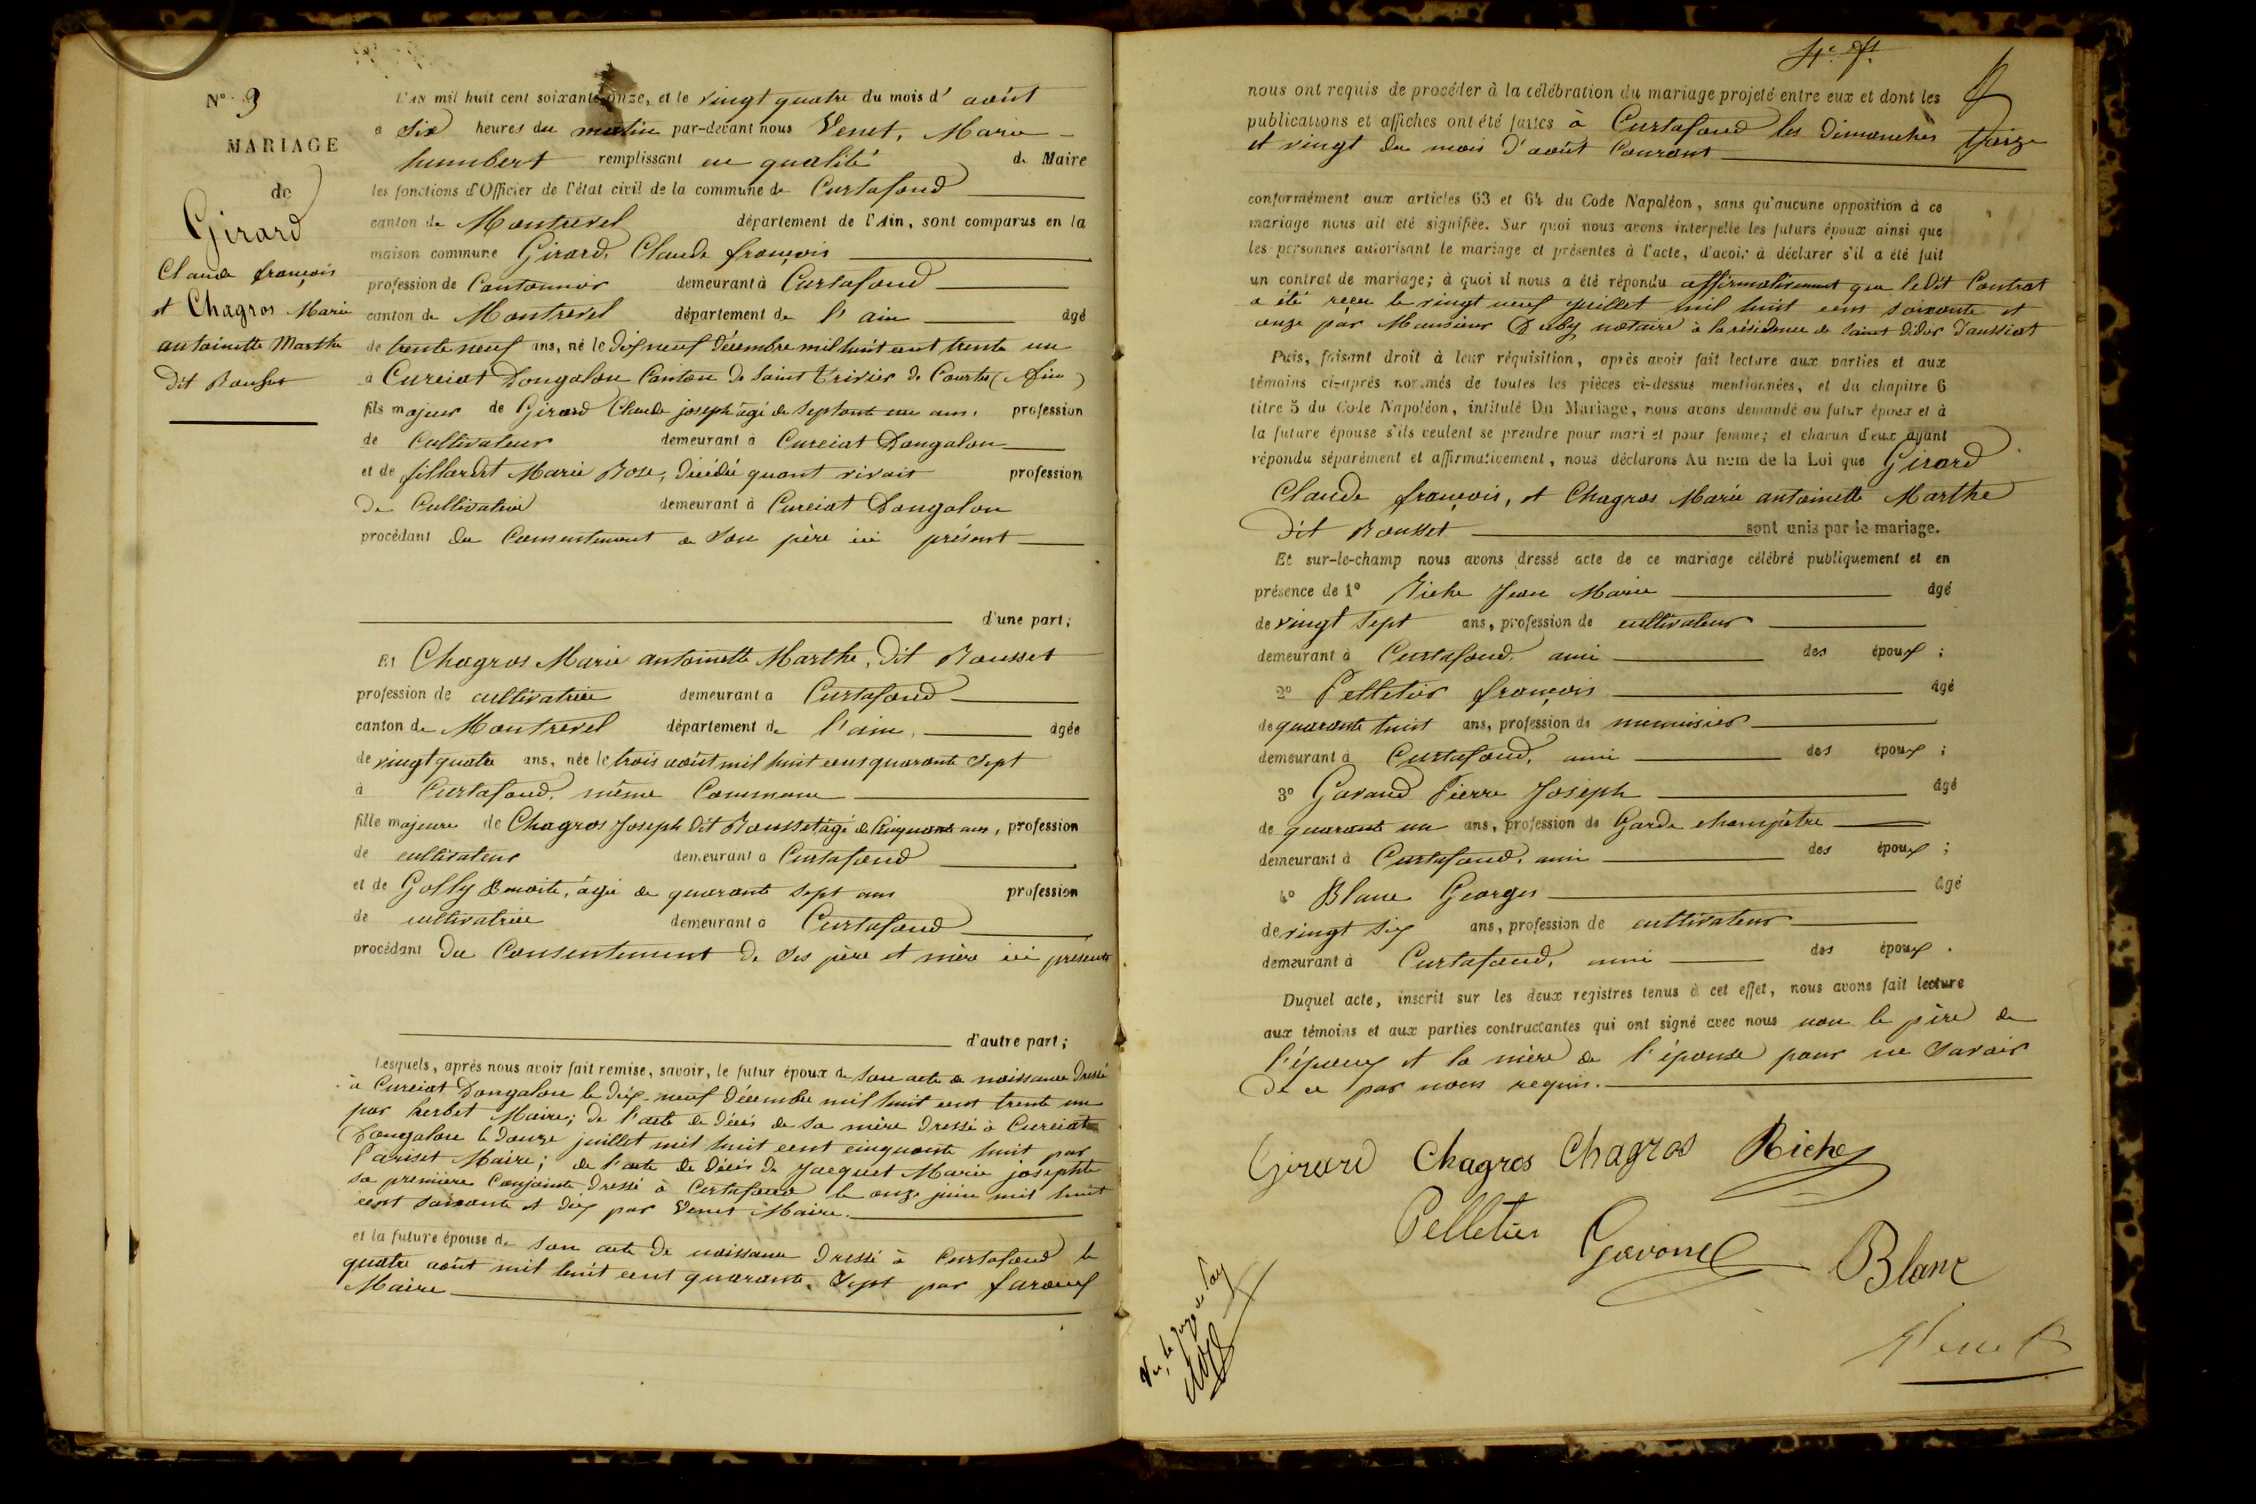 N° 9
MARIAGE
de
Girard
Claude françois
et Chagros Marie
antoinette Marthe
dit Rousset
L'AN mil huit cent soixante onze, et le vingt quatre du mois d' août
a Six heures du matin par-devant nous Venet, Marie
humbert remplissant en qualité de Maire
les fonctions d'Officier de l'état civil de la commune de Curtafond
canton de Montrevel département de l'Ain, sont comparus en la
maison commune Girard, Claude françois
profession de Cantonnier demeurant à Curtafond
canton de Montrevel département de l'ain âgé
de trente neuf ans, né le dix neuf décembre mil huit cent trente un
à Curciat Dongalon Canton de Saint Trivier de Courtes (Ain)
fils majeur de Girard Claude joseph âgé de septante un ans, profession
de Cultivateur demeurant à Curciat Dongalon
et de fillardet Marie Rose, décédée quant vivait profession
de Cultivatrice demeurant à Curciat Dongalon
procédant du Consentement de Son père ici présent
d'une part;
Et Chagros Marie antoinette Marthe, dit Rousset
profession de cultivatrice demeurant à Curtafond
canton de Montrevel département de l'ain, âgée
de vingt quatre ans, née le trois août mil huit cent quarante sept
à Curtafond, même Commune
fille majeure de Chagros Joseph dit Rousset âgé de Cinquante ans, profession
de cultivateur demeurant à Curtafond
et de Golly Benoite, âgée de quarante sept ans profession
de cultivatrice demeurant à Curtafond
procédant du Consentement de Ses père et mère ici présents
d'autre part;
Lesquels, après nous avoir fait remise, savoir, le futur époux de Son acte de naissance dressé
à Curciat Dongalon le dix-neuf décembre mil huit cent trente un
par herbet Maire; de l'acte de décès de sa mère dressé à Curciat
Dongalon le douze juillet mil huit cent cinquante huit par
Pariset Maire; de l'acte de décès de Jacquet Marie josephte
sa première Conjointe dressé à Curtafond le onze juin mil huit
cent soixante et dix par Venet Maire.
et la future épouse de Son acte de naissance dressé à Curtafond le
quatre août mil huit cent quarante Sept par
Maire
nous ont requis de procéder à la célébration du mariage projeté entre eux et dont les
publications et affiches ont été faites à Curtafond les dimanches treize
et vingt du mois d'août Courant
conformément aux articles 63 et 64 du Code Napoléon, sans qu'aucune opposition à ce
mariage nous ait été signifiée. Sur quoi nous avons interpellé les futurs époux ainsi que
les personnes autorisant le mariage et présentes à l'acte, d'avoir à déclarer s'il a été fait
un contrat de mariage; à quoi il nous a été répondu affirmativement que ledit Contrat
a été reçu le vingt neuf juillet mil huit cent soixante et
onze par Monsieur Duby notaire à la résidence de Saint didier d'aussiat
Puis, faisant droit à leur réquisition, après avoir fait lecture aux parties et aux
témoins ci-après nommés de toutes les pièces ci-dessus mentionnées, et du chapitre 6
titre 5 du Code Napoléon, intitulé Du Mariage, nous avons demandé au futur époux et à
la future épouse s'ils veulent se prendre pour mari et pour femme; et chacun d'eux ayant
répondu séparément et affirmativement, nous déclarons Au nom de la Loi que Girard
Claude françois, et Chagros Marie antoinette Marthe
dit Rousset sont unis par le mariage.
Et sur-le-champ nous avons dressé acte de ce mariage célébré publiquement et en
présence de 1° Riche Jean Marie âgé
de vingt sept ans, profession de cultivateur
demeurant à Curtafond, ami des époux;
2° Pelletier françois âgé
de quarante huit ans, profession de menuisier
demeurant à Curtafond, ami des époux;
3° Gavand Pierre Joseph âgé
de quarante un ans, profession de Garde champêtre
demeurant à Curtafond, ami des époux;
4° Blanc Georges âgé
de vingt six ans, profession de cultivateur
demeurant à Curtafond, ami des époux.
Duquel acte, inscrit sur les deux registres tenus à cet effet, nous avons fait lecture
aux témoins et aux parties contractantes qui ont signé avec nous non le père de
l'époux et la mère de l'épouse pour ne Savoir
de ce par nous requis.
Girard Chagros Chagros Riche
Pelletier Gavand Blanc
Venet
Vu, le Juge de Paix